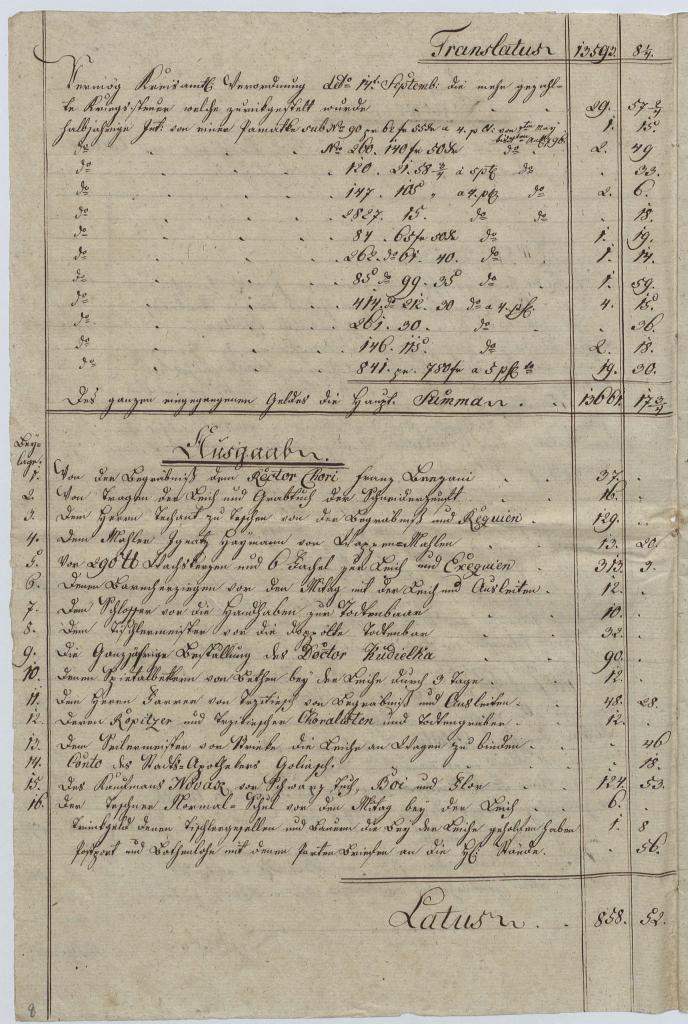 Translatus 13592. 84.
Vermög Kreisamtl. Verordnung ddto 14t. Septemb: die mehr gezahl-
te Kriegssteuer welche zurückgestellt wurde 29. 57 2/4
halbjährige Int: von einer Pamatke sub No 90 pr 62 fr 55 xr a 4. p Ct: von 1. 15
do No 260. 140 fr 50 xr do 2. 49
do 120. 21. 58 3/4 à 5 pct do . 33.
do 147. 105 " a 4. pct do 2. 6.
do 2827. 15. do do . 18.
do 84. 65 fr 50 xr do 1. 19.
do 262. do 61. 40. do 1. 14.
do 85 do 99. 35 do 1. 59.
do 414. do 212. 30 do a 4. pct. 4. 15
do 261. 30. do . 36.
do 146. 115 do 2. 18.
do 841. pr. 780 fr a 5 pct do 19. 30.
Des ganzen eingegangenen Geldes die Haupt Summa 13661. 17 3/4
Bey-
lage: Ausgaaben.
1. Von der Begräbniß dem Rector Chori Franz Brezani 37. .
2. Von Tragen der Leich und Grabtuch der Schneiderzunft 16. .
3. Dem Herrn Dechant zu Teschen von der Begräbniß und Requien. 129. .
4. Dem Mahler Ignatz Haymann von Wappen-Mahlen 13. 20.
5. Vor 290 tt Wachskerzen und 6 Fackel zur Leich und Exequien 313. 3.
6. Denen Barmherzigen vor den Mitag mit der Leich und Ausleiten. 12. .
7. Dem Schlosser vor die Handhaben zur Todtenbaar 10. .
8. Dem Tischlermeister vor die doppelte Todtenbar 32. .
9. Die Ganzjährige Bestallung des Doctor Kudielka 90. .
10. Denen Spietalbettlern von Bethen bey der Leiche durch 3 Tage. 12. .
11. Dem Herrn Farrer von Trzitiesch von Begräbniß und Ausleiten. 48. 28.
12. Deren Ropitzer und Trzitiescher Choralisten und Todtengräber. 12. .
13. Dem Seilermeister von Stricke die Leiche an Wagen zu binden. . 46
14. Conto des Stadt-Apothekers Goliasch. . 18.
15. Des Kaufmans Kovacz vor Schwarz Tuch, Boi und Flor 124. 53.
16. Der Teschner Normal-Schul vor den Mitag bey der Leich 6. .
Trinkgeld denen Tischlergesellen und Bauern die bey der Leiche geholfen haben 1. 8
Postport und Bothenlohn mit denen Parten Briefen an die H: Stände. . 56.
Latus 858. 52.
8